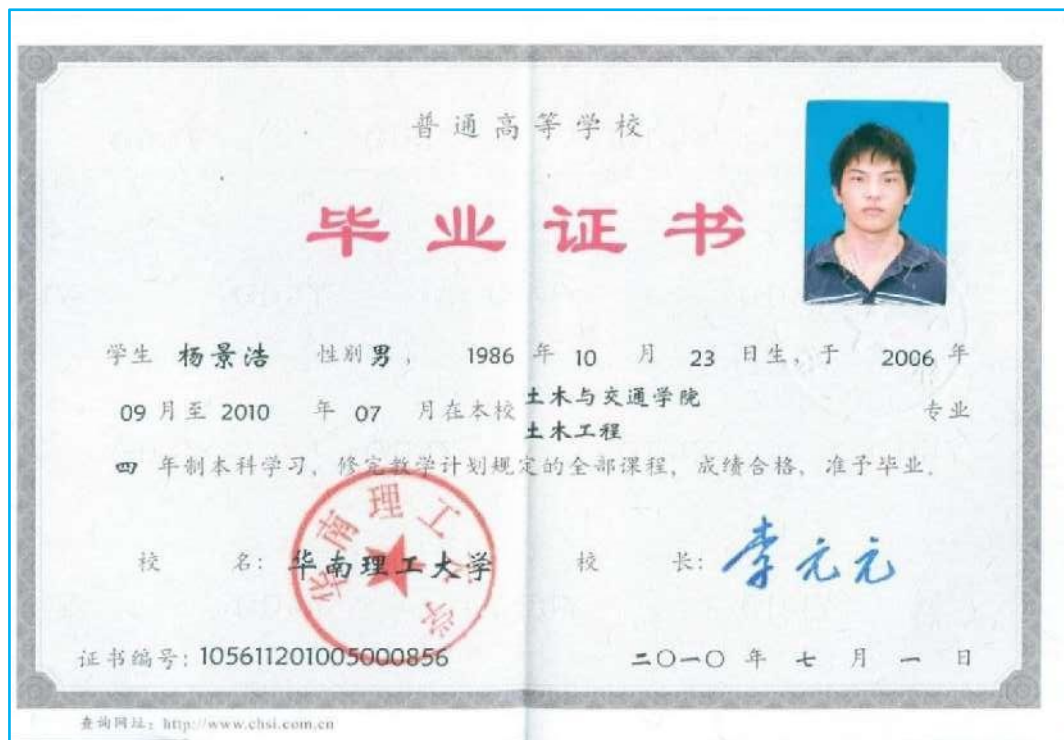 普通高等学校
毕业证书
学生 杨景浩 性别 男， 1986 年 10 月 23 日生，于 2006 年
09 月至 2010 年 07 月在本校 土木与交通学院 土木工程 专业
四 年制本科学习，修完教学计划规定的全部课程，成绩合格，准予毕业．
华南理工大学
校 名：华南理工大学 校 长：李元元
证书编号：105611201005000856 二〇一〇 年 七 月 一 日
查询网址：http://www.chsi.com.cn